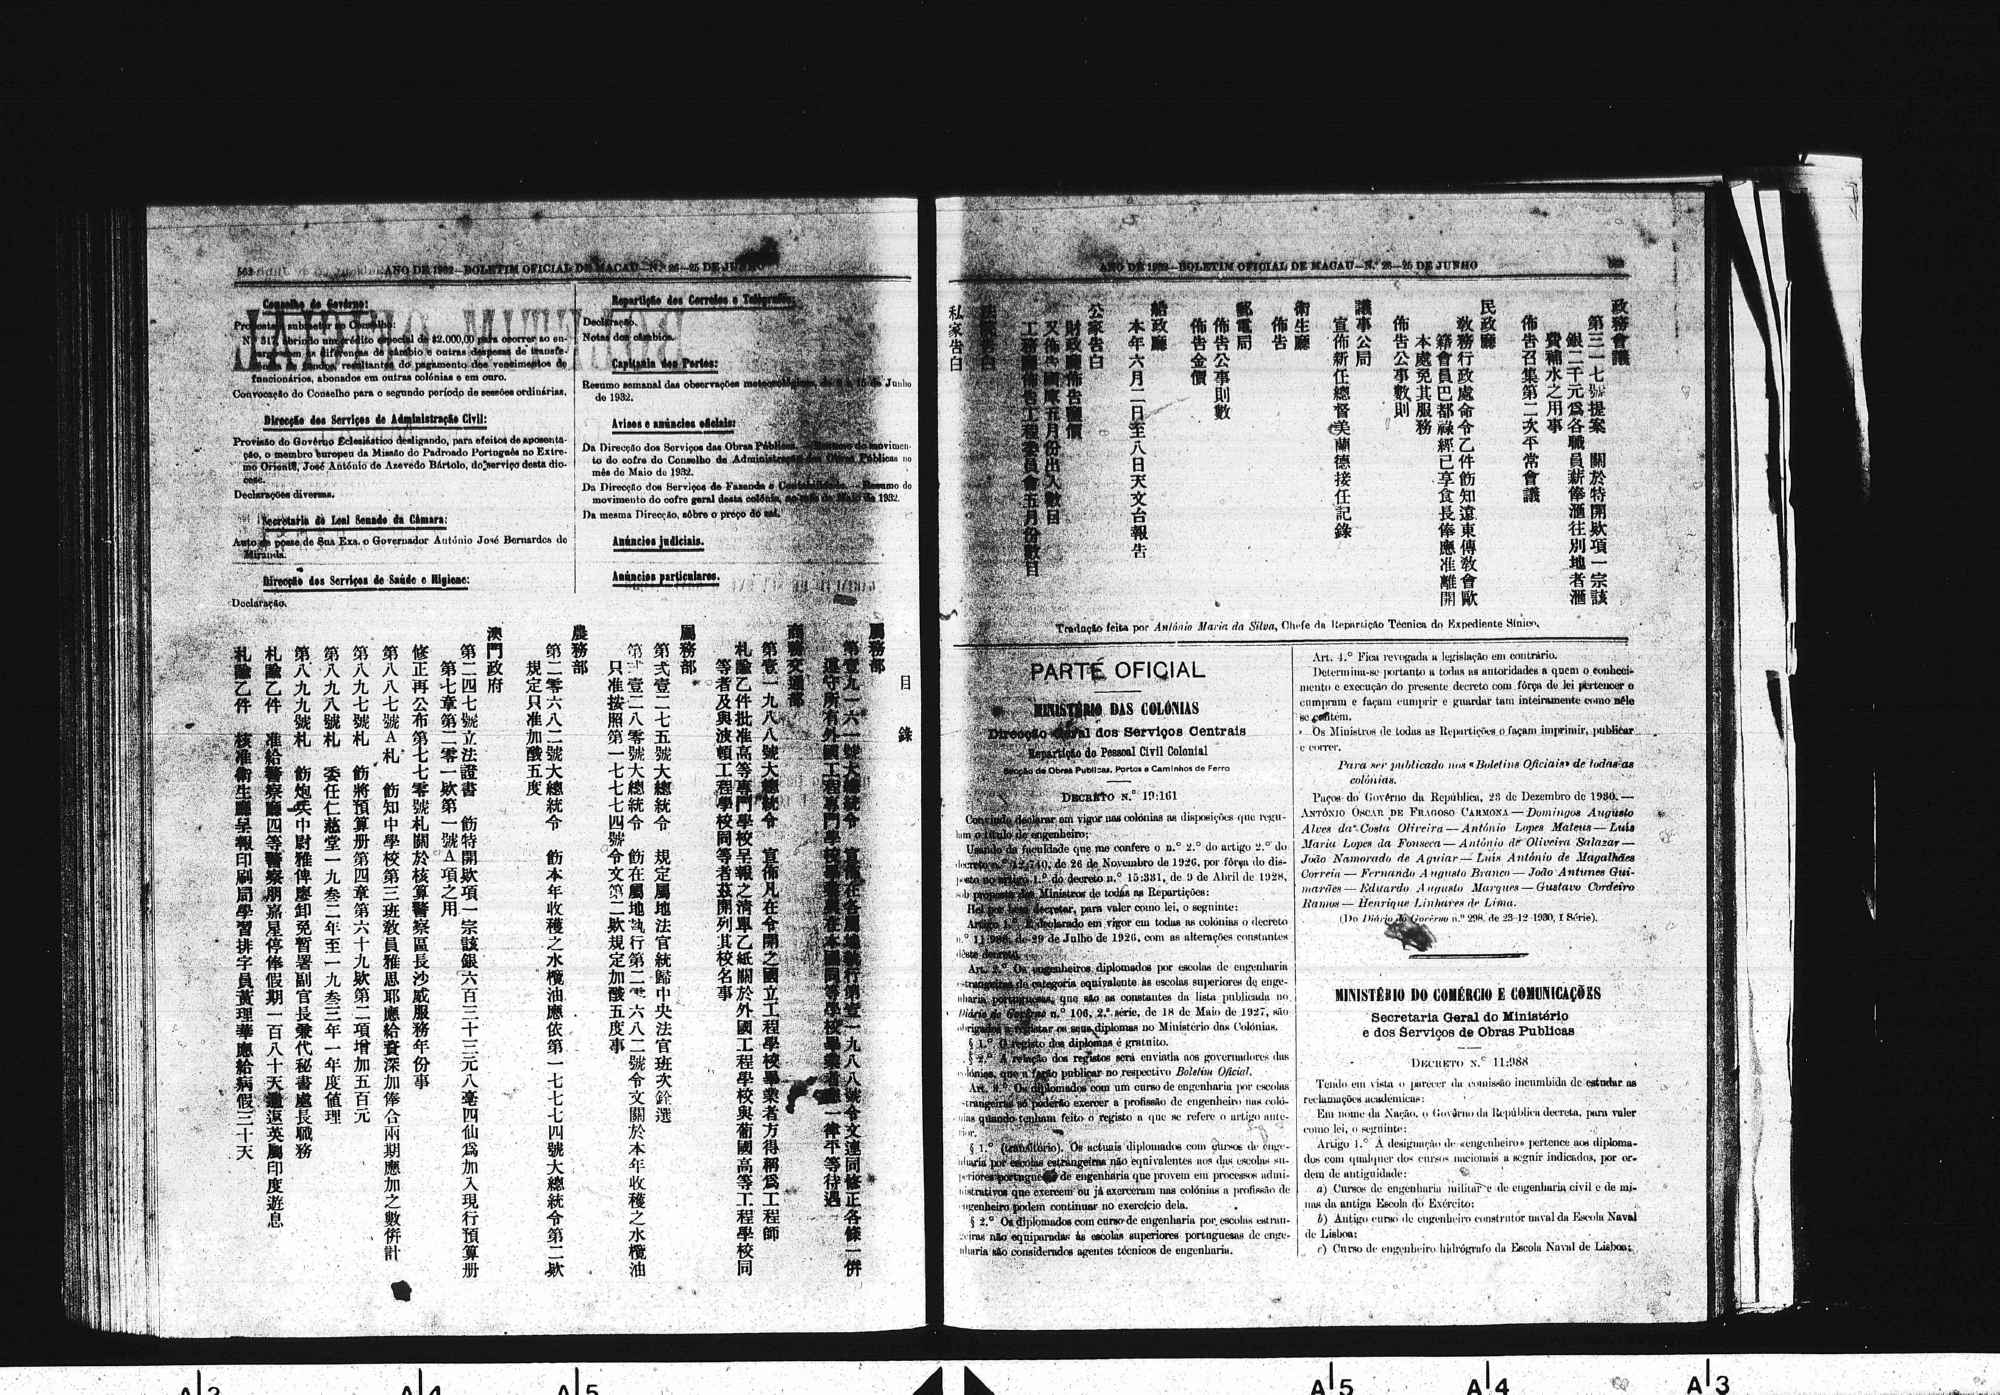 562
ANO DE 1932—BOLETIM OFICIAL DE MACAU—N.º 26—25 DE JUNHO
Conselho do Govêrno:
Propostas a submeter ao Conselho:
N.º 317, abrindo um crédito especial de $2.000,00 para ocorrer ao en-
cargo com as diferenças de câmbio e outras despesas de transfe-
rência de fundos, resultantes do pagamento dos vencimentos de
funcionários, abonados em outras colónias e em ouro.
Convocação do Conselho para o segundo período de sessões ordinárias.
Direcção dos Serviços de Administração Civil:
Provisão do Govêrno Eclesiástico desligando, para efeitos de aposenta-
ção, o membro europeu da Missão do Padroado Português no Extre-
mo Oriente, José António de Azevedo Bártolo, do serviço desta dio-
cese.
Declarações diversas.
Secretaria do Leal Senado da Câmara:
Auto de posse de Sua Exa. o Governador António José Bernardes de
Miranda.
Direcção dos Serviços de Saúde e Higiene:
Declaração.
Repartição dos Correios e Telégrafos:
Declaração.
Notas dos câmbios.
Capitania dos Portos:
Resumo semanal das observações meteorológicas, de 15 de Junho
de 1932.
Avisos e anúncios oficiais:
Da Direcção dos Serviços das Obras Públicas.—Resumo do movimen-
to do cofre do Conselho de Administração das Obras Públicas no
mês de Maio de 1932.
Da Direcção dos Serviços de Fazenda e Contabilidade.—Resumo do
movimento do cofre geral desta colónia, no mês de Maio de 1932.
Da mesma Direcção, sôbre o preço do sal.
Anúncios judiciais.
Anúncios particulares.
目 錄
屬務部
第壹九一六一號大總統令 宣佈在各屬地執行第壹一九八八號令文連同修正各條一併
遵守所有外國工程專門學校畢業在本國同等學校畢業者一律平等待遇
商務交通部
第壹一九八八號大總統令 宣佈凡在令開之國立工程學校畢業者方得稱爲工程師
札諭乙件批准高等專門學校呈報之清單乙紙關於外國工程學校與葡國高等工程學校同
等者及與波頓工程學校同等者茲開列其校名事
屬務部
第弍壹二七五號大總統令 規定屬地法官統歸中央法官班次銓選
第弍壹二八零號大總統令 飭在屬地執行第二零六八二號令文關於本年收穫之水欖油
只准按照第一七七七四號令文第二欵規定加酸五度事
農務部
第二零六八二號大總統令 飭本年收穫之水欖油應依第一七七七四號大總統令第二欵
規定只准加酸五度
澳門政府
第二四七號立法證書 飭特開欵項一宗該銀六百三十三元八毫四仙爲加入現行預算册
第七章第二零一欵第一號A項之用
修正再公布第七七零號札關於核算警察區長沙威服務年份事
第八八七號A札 飭知中學校第三班教員雅思耶應給資深加俸合兩期應加之數併計
第八九七號札 飭將預算册第四章第六十九欵第二項增加五百元
第八九八號札 委任仁慈堂一九叁二年至一九叁三年一年度値理
第八九九號札 飭炮兵中尉雅俾廖卸免暫署副官長兼代秘書處長職務
札諭乙件 准給警察廳四等警察朋嘉星停俸假期一百八十天遄返英屬印度遊息
札諭乙件 核准衛生廳呈報印刷局學習排字員黃理華應給病假三十天
ANO DE 1932—BOLETIM OFICIAL DE MACAU—N.º 26—25 DE JUNHO
政務會議
第三一七號提案 關於特開欵項一宗該
銀二千元爲各職員薪俸滙往別地者滙
費補水之用事
佈告召集第二次平常會議
民政廳
敎務行政處命令乙件飭知遠東傳敎會歐
籍會員巴都祿經已享食長俸應准離開
本處免其服務
佈告公事數則
議事公局
宣佈新任總督美蘭德接任記錄
衛生廳
佈告
郵電局
佈告公事則數
佈告金價
船政廳
本年六月二日至八日天文台報告
公家告白
財政廳佈告鹽價
又佈告國庫五月份出入數目
工務廳佈告工程委員會五月份數目
法院告白
私家告白
Tradução feita por António Maria da Silva, Chefe da Repartição Técnica do Expediente Sínico.
PARTE OFICIAL
MINISTÉRIO DAS COLÓNIAS
Direcção Geral dos Serviços Centrais
Repartição do Pessoal Civil Colonial
Secção de Obras Publicas, Portos e Caminhos de Ferro
DECRETO N.º 19:161
Convindo declarar em vigor nas colónias as disposições que regu-
lam o título de engenheiro;
Usando da faculdade que me confere o n.º 2.º do artigo 2.º do
decreto n.º 12:740, de 26 de Novembro de 1926, por fôrça do dis-
posto no artigo 1.º do decreto n.º 15:331, de 9 de Abril de 1928,
sob proposta dos Ministros de todas as Repartições:
Hei por bem decretar, para valer como lei, o seguinte:
Artigo 1.º É declarado em vigor em todas as colónias o decreto
n.º 11:988, de 29 de Julho de 1926, com as alterações constantes
dêste decreto.
Art. 2.º Os engenheiros diplomados por escolas de engenharia
estrangeiras de categoria equivalente às escolas superiores de enge-
nharia portuguesas, que são as constantes da lista publicada no
Diário do Govêrno n.º 106, 2.ª série, de 18 de Maio de 1927, são
obrigados a registar os seus diplomas no Ministério das Colónias.
§ 1.º O registo dos diplomas é gratuito.
§ 2.º A relação dos registos será enviada aos governadores das
colónias, que a farão publicar no respectivo Boletim Oficial.
Art. 3.º Os diplomados com um curso de engenharia por escolas
estrangeiras só poderão exercer a profissão de engenheiro nas coló-
nias quando tenham feito o registo a que se refere o artigo ante-
rior.
§ 1.º (transitório). Os actuais diplomados com cursos de enge-
nharia por escolas estrangeiras não equivalentes aos das escolas su-
periores portuguesas de engenharia que provem em processos admi-
nistrativos que exercem ou já exerceram nas colónias a profissão de
engenheiro podem continuar no exercício dela.
§ 2.º Os diplomados com curso de engenharia por escolas estran-
geiras não equiparadas às escolas superiores portuguesas de enge-
nharia são considerados agentes técnicos de engenharia.
Art. 4.º Fica revogada a legislação em contrário.
Determina-se portanto a todas as autoridades a quem o conheci-
mento e execução do presente decreto com fôrça de lei pertencer o
cumpram e façam cumprir e guardar tam inteiramente como nêle
se contém.
Os Ministros de todas as Repartições o façam imprimir, publicar
e correr.
Para ser publicado nos «Boletins Oficiais» de todas as
colónias.
Paços do Govêrno da República, 23 de Dezembro de 1930.—
ANTÓNIO ÓSCAR DE FRAGOSO CARMONA—Domingos Augusto
Alves da Costa Oliveira—António Lopes Mateus—Luís
Maria Lopes da Fonseca—António de Oliveira Salazar—
João Namorado de Aguiar—Luís António de Magalhães
Correia—Fernando Augusto Branco—João Antunes Gui-
marães—Eduardo Augusto Marques—Gustavo Cordeiro
Ramos—Henrique Linhares de Lima.
(Do Diário do Govêrno n.º 298, de 23-12-1930, I Série).
MINISTÉRIO DO COMÉRCIO E COMUNICAÇÕES
Secretaria Geral do Ministério
e dos Serviços de Obras Publicas
DECRETO N.º 11:988
Tendo em vista o parecer da comissão incumbida de estudar as
reclamações académicas:
Em nome da Nação, o Govêrno da República decreta, para valer
como lei, o seguinte:
Artigo 1.º A designação de «engenheiro» pertence aos diploma-
dos com qualquer dos cursos nacionais a seguir indicados, por or-
dem de antiguidade:
a) Cursos de engenharia militar e de engenharia civil e de mi-
nas da antiga Escola do Exército;
b) Antigo curso de engenheiro construtor naval da Escola Naval
de Lisboa;
c) Curso de engenheiro hidrógrafo da Escola Naval de Lisboa;
A 5
A 4
A 3